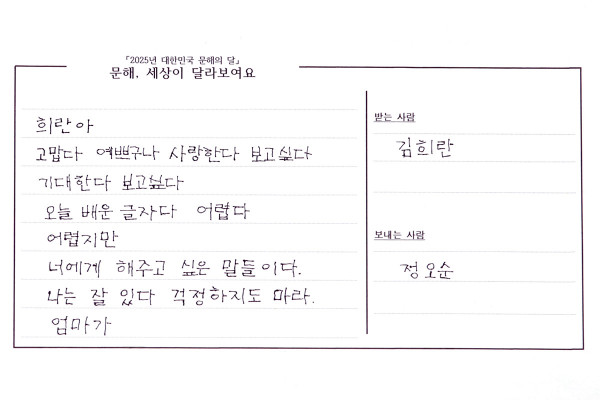 「2025년 대한민국 문해의 달」
문해, 세상이 달라보여요
희란아
고맙다 예쁘구나 사랑한다 보고싶다
기대한다 보고싶다
오늘 배운 글자다 어렵다
어렵지만
너에게 해주고 싶은 말들이다.
나는 잘 있다 걱정하지도 마라.
엄마가
받는 사람
김희란
보내는 사람
정오순